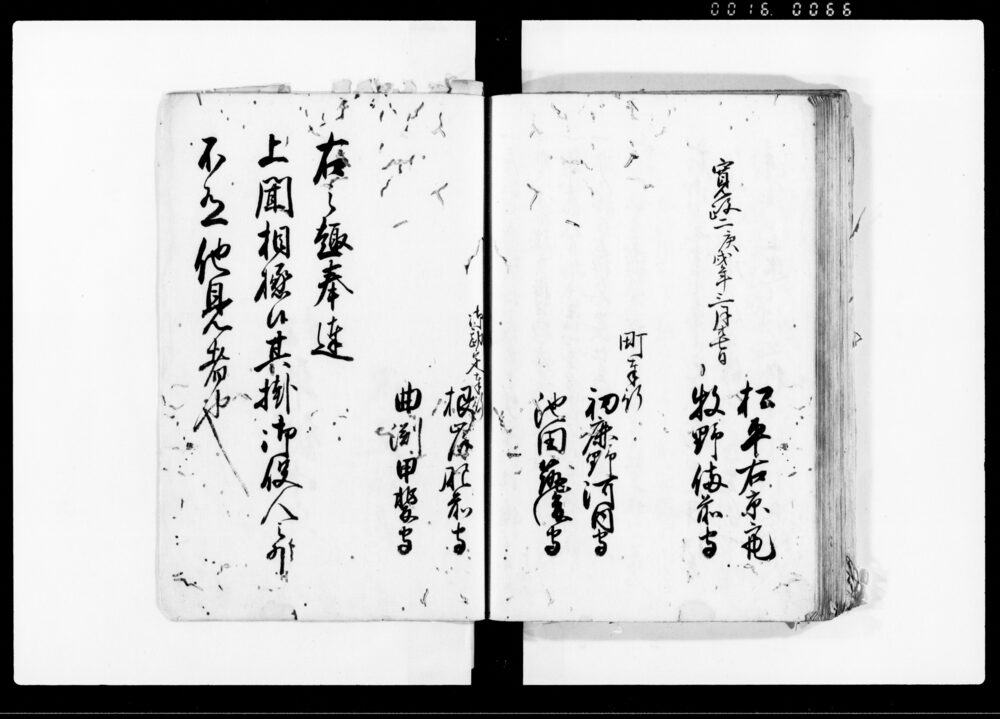 0016 0066
寛政二庚戌年三月廿七日
松平右京亮
牧野備前守
町奉行
初鹿野河内守
池田筑後守
御勘定奉行
根岸肥前守
曲渕甲斐守
右之趣奉達
上聞相極候其掛御役人之外
不可他見者也